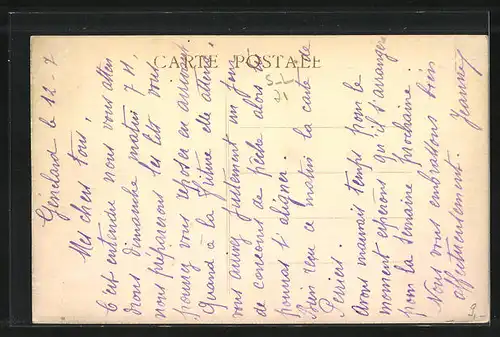 CARTE POSTALE
Génelard le 12-7
Mes chers tous,
C'est entendu nous vous atten
drons dimanche matin 7 H.
nous préparerons les lits vous
pourrez vous reposer en arrivant.
Quand à la friture elle attend,
vous aurez justement un jour
de concours de pêche alors tu
pourras t'aligner.
Bien reçu ce matin la carte de
Perriers.
Avons mauvais temps pour le
moment espérons qu'il s'arrangera
pour la semaine prochaine.
Nous vous embrassons bien
affectueusement. Jeanne